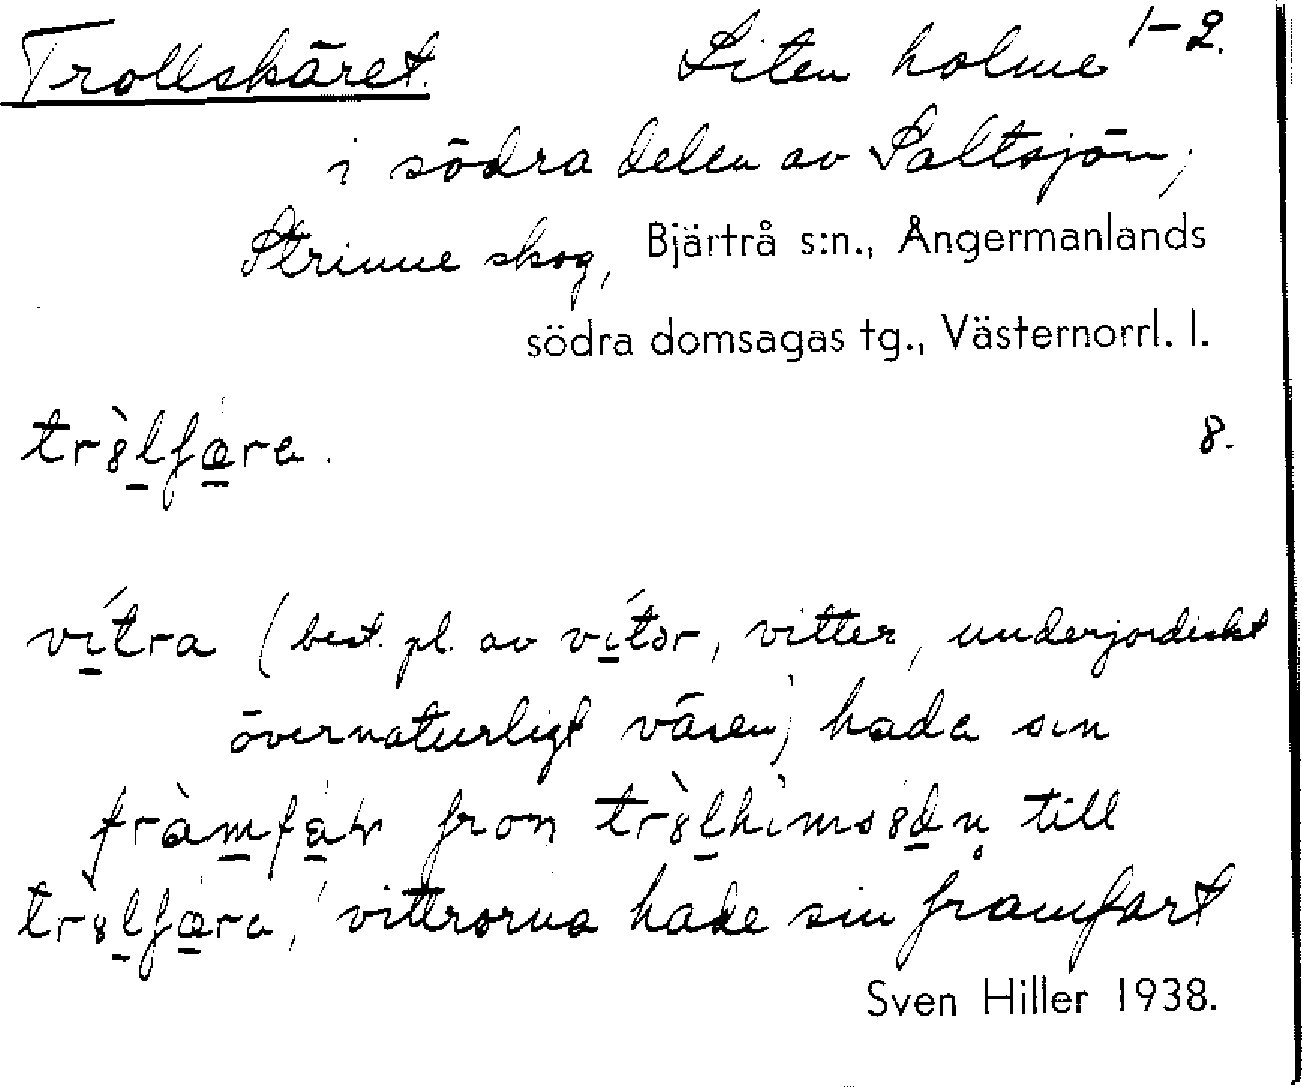 Trollskäret. Liten holme 1-2.
i södra delen av Saltsjön,
Strinne skog, Bjärtrå s:n., Ångermanlands
södra domsagas tg., Västernorrl. l.
8.
vitra (best. pl. av vitər, vitter, underjordiskt
övernaturligt väsen) hade sin
från till
vittrorna hade sin framfart
Sven Hiller 1938.